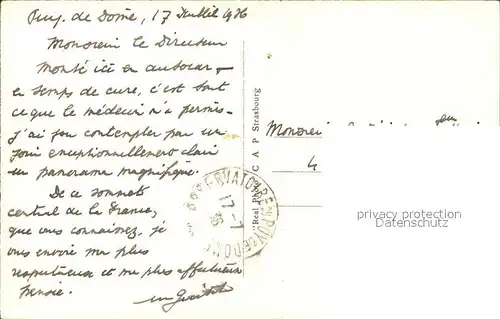 Puy de Dôme, 17 Juillet 1936
Monsieur le Directeur
Monté ici en autocar –
en temps de cure, c'est tout
ce que le médecin m'a permis –
j'ai pu contempler par un
jour exceptionnellement clair
un panorama magnifique.
De ce sommet
central de la France,
que vous connaissez, je
vous envoie ma plus
respectueuse et ma plus affectueuse
pensée.
OBSERVATOIRE DU PUY DE DOME
17-7
36
"Real Photo" C A P Strasbourg
Monsieur
privacy protection
Datenschutz